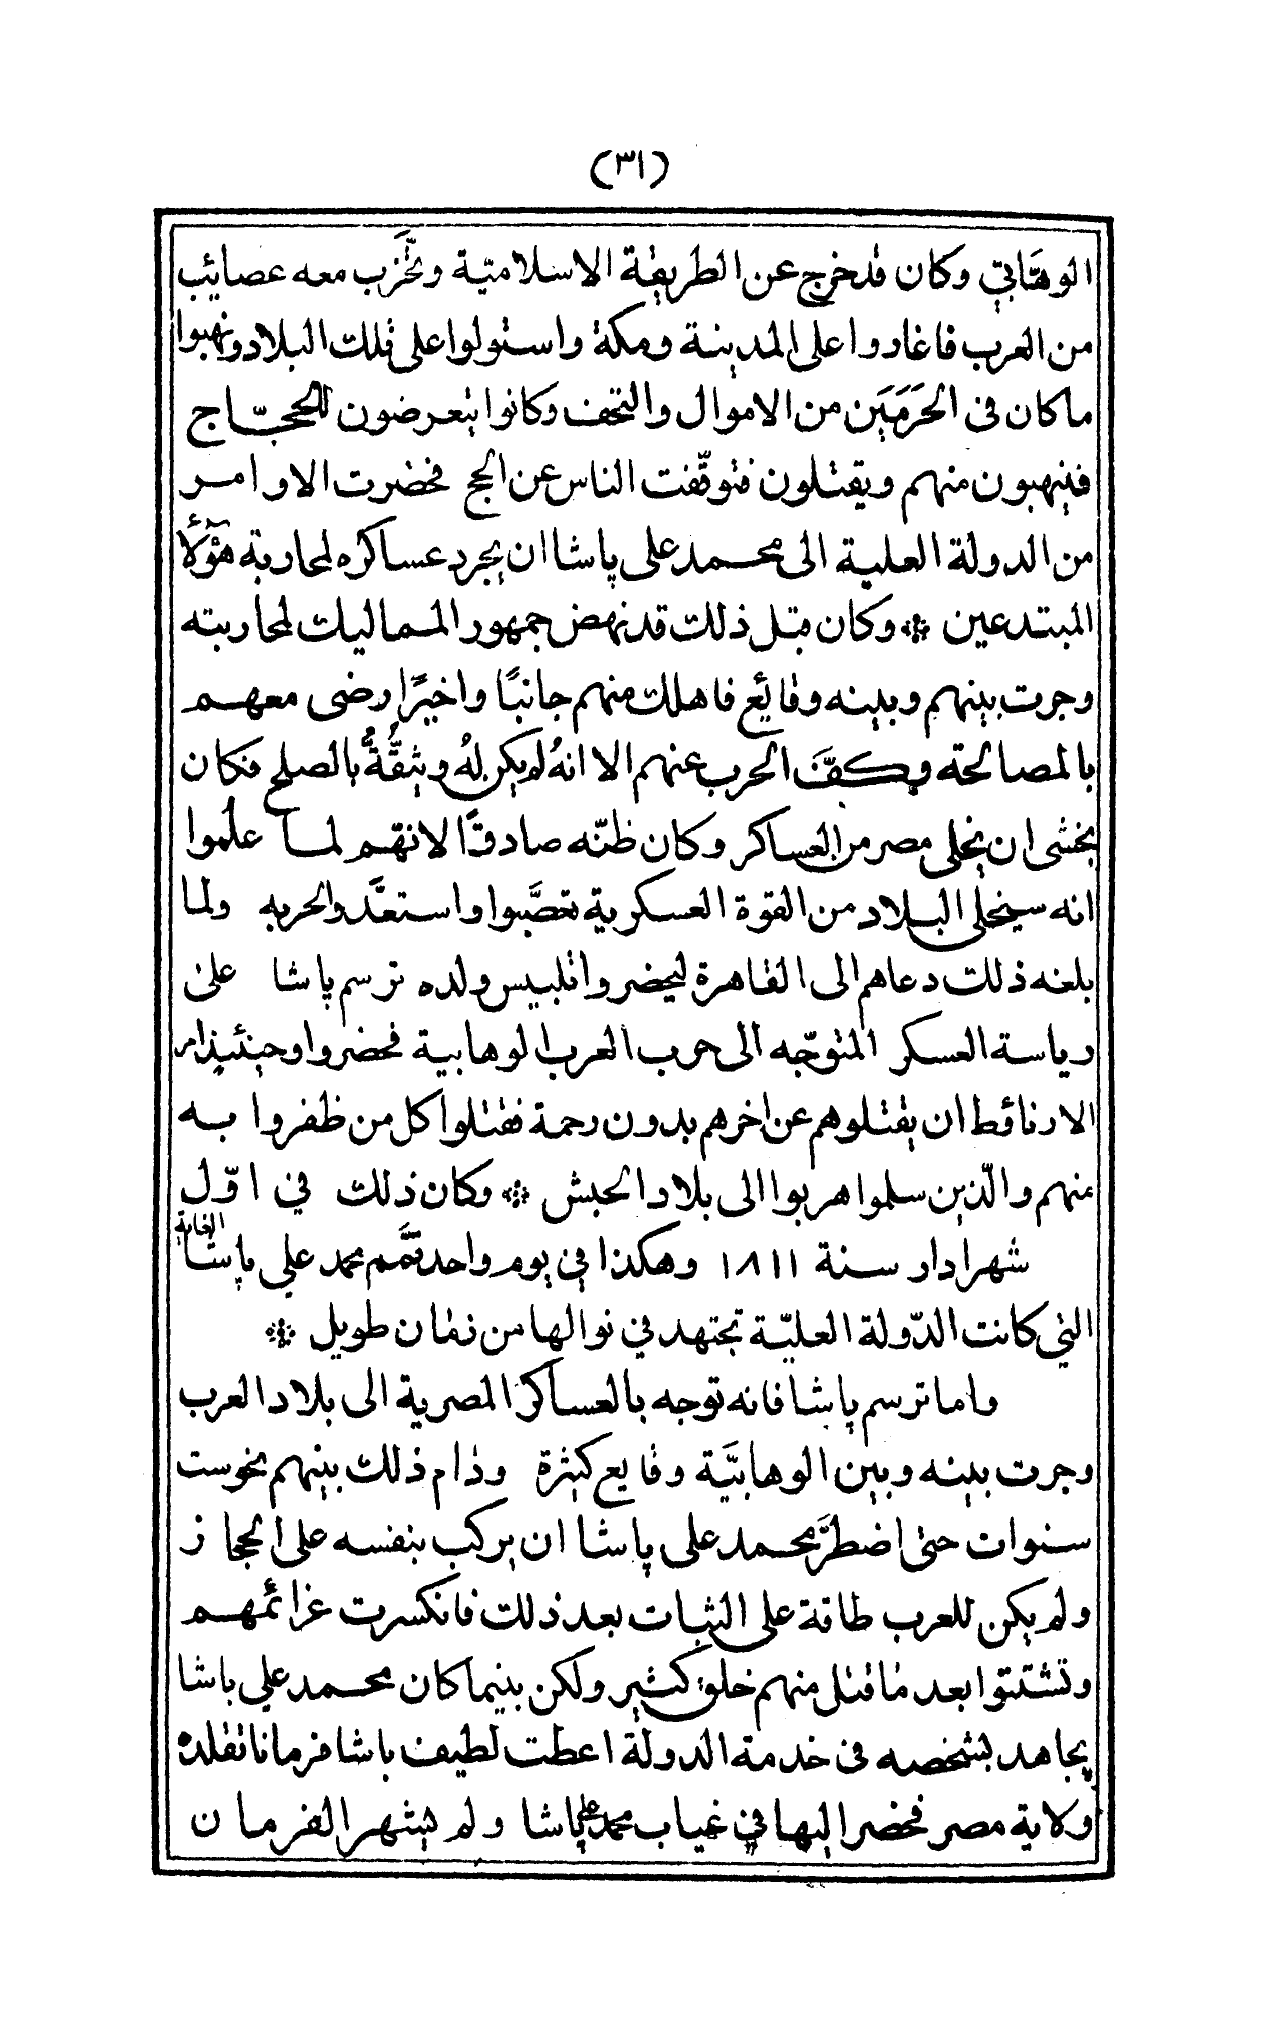 (٣١)
الوهَّابي وكان قد خرج عن الطريقة الاسلاميّة وتحَّزب معه عصايب
من العرب فاغاروا على المدينة ومكة واستولوا على تلك البلاد ونهبوا
ما كان فى الحَرَمَين من الاموال والتحف وكانوا يتعرضون للحجّاج
فينهبون منهم ويقتلون فتوقّفت الناس عن الحج فحضرت الاوامر
من الدولة العلية الى محمد على پاشا ان يجرد عساكره لمحاربة هؤلآء
المبتدعين * وكان قبل ذلك قد نهض جمهور المماليك لمحاربته
وجرت بينهم وبينه وقائع فاهلك منهم جانبًا واخيرًا رضى معهم
بالمصالحة وكفَّ الحرب عنهم الا انهُ لم يكن لهُ وثقَّةُ بالصلح فكان
يخشى ان يخلى مصر من العساكر وكان ظنّه صادقًا لانهّم لما علموا
انه سيخلى البلاد من القوة العسكرية تعصَّبوا واستعدَّوا لحربه ولما
بلغه ذلك دعاهم الى القاهرة ليحضروا تلبيس ولده ترسم پاشا على
رياسة العسكر المتوجّه الى حرب العرب الوهابية فحضروا وحينئيذ امر
الارناؤط ان يقتلوهم عن اخرهم بدون رحمة فقتلوا كل من ظفروا به
منهم والّذين سلموا هربوا الى بلاد الحبش * وكان ذلك في اوّل
شهر ادار سنة ١٨١١ وهكذا في يوم واحد تمَّم محمد علي پاشا الغاية
التي كانت الدّولة العليّة تجتهد في نوالها من زمان طويل *
واما ترسم پاشا فانه توجه بالعساكر المصرية الى بلاد العرب
وجرت بينه وبين الوهابيَّة وقايع كثيرة ودام ذلك بينهم نحوست
سنوات حتى اضطرَّ محمد على پاشا ان يركب بنفسه على الحجاز
ولم يكن للعرب طاقة على الثبات بعد ذلك فانكسرت عزائمهم
وتشتتوا بعد ما قتل منهم خلق كثير ولكن بينما كان محمد علي باشا
يجاهد بشخصه فى خدمة الدولة اعطت لطيف باشا فرمانا تقلده
ولاية مصر فحضر اليها في غياب محمد على پاشا ولم يشهر الفرمان